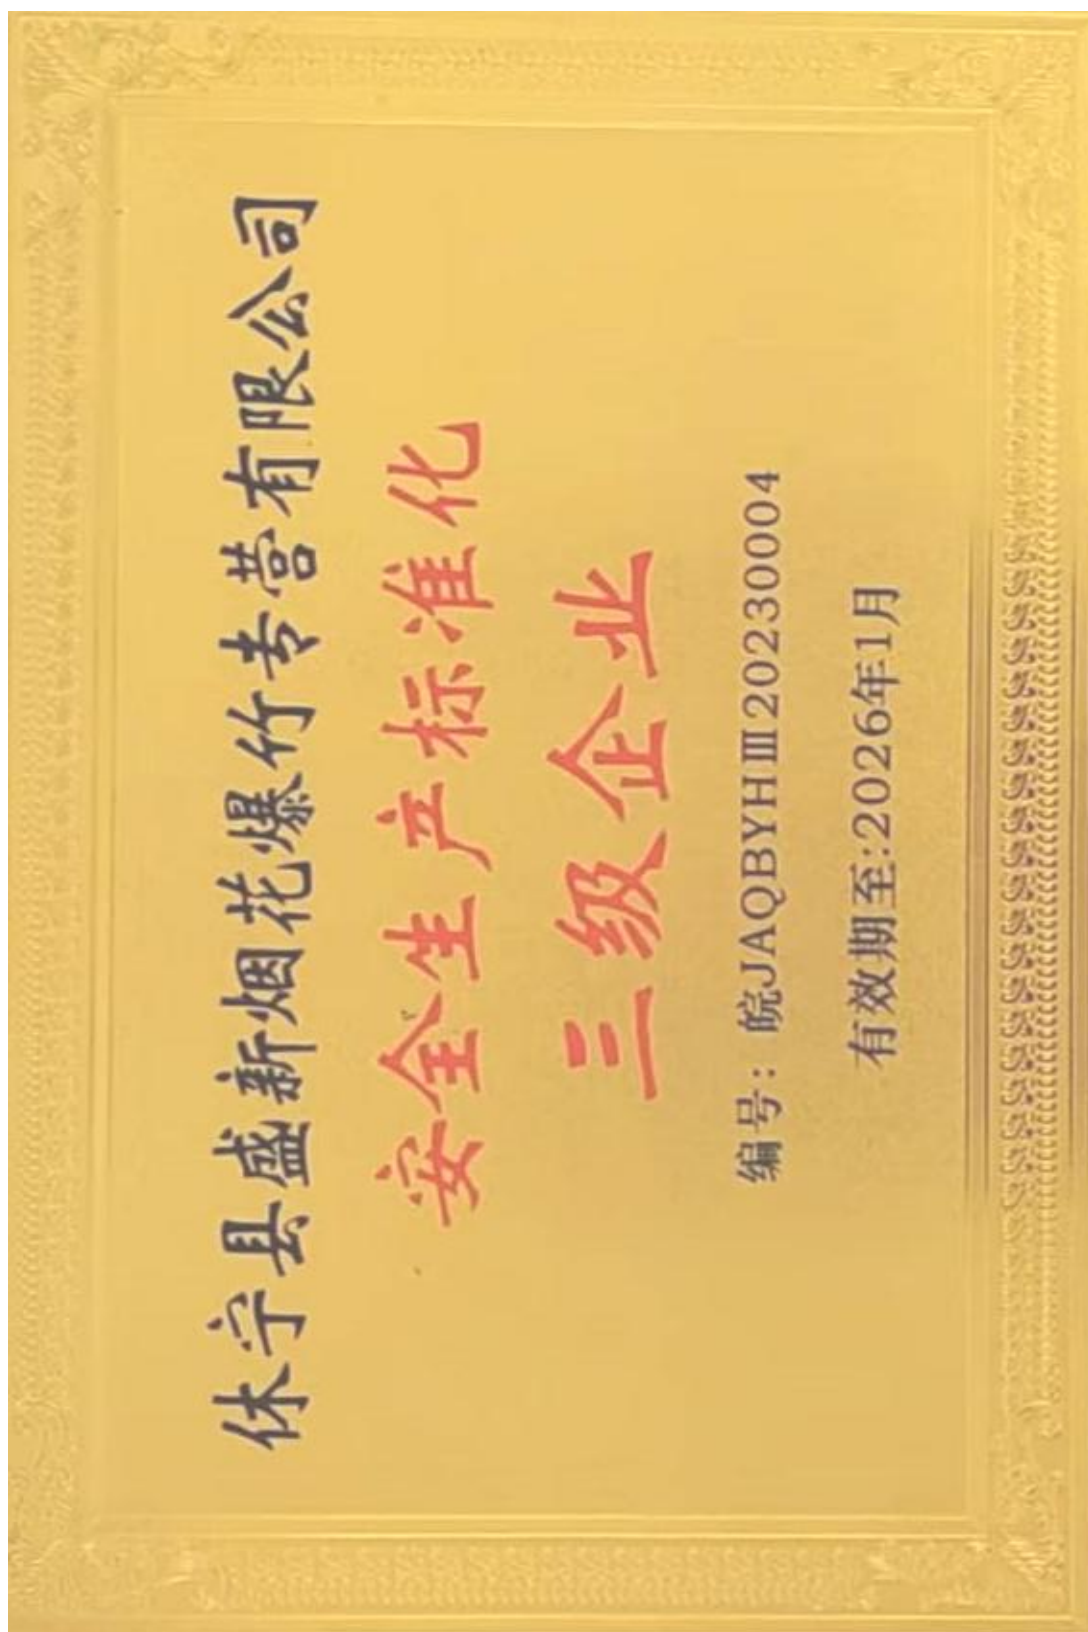 休宁县盛新烟花爆竹专营有限公司
安全生产标准化
三级企业
编号：皖JAQBYHⅢ20230004
有效期至:2026年1月